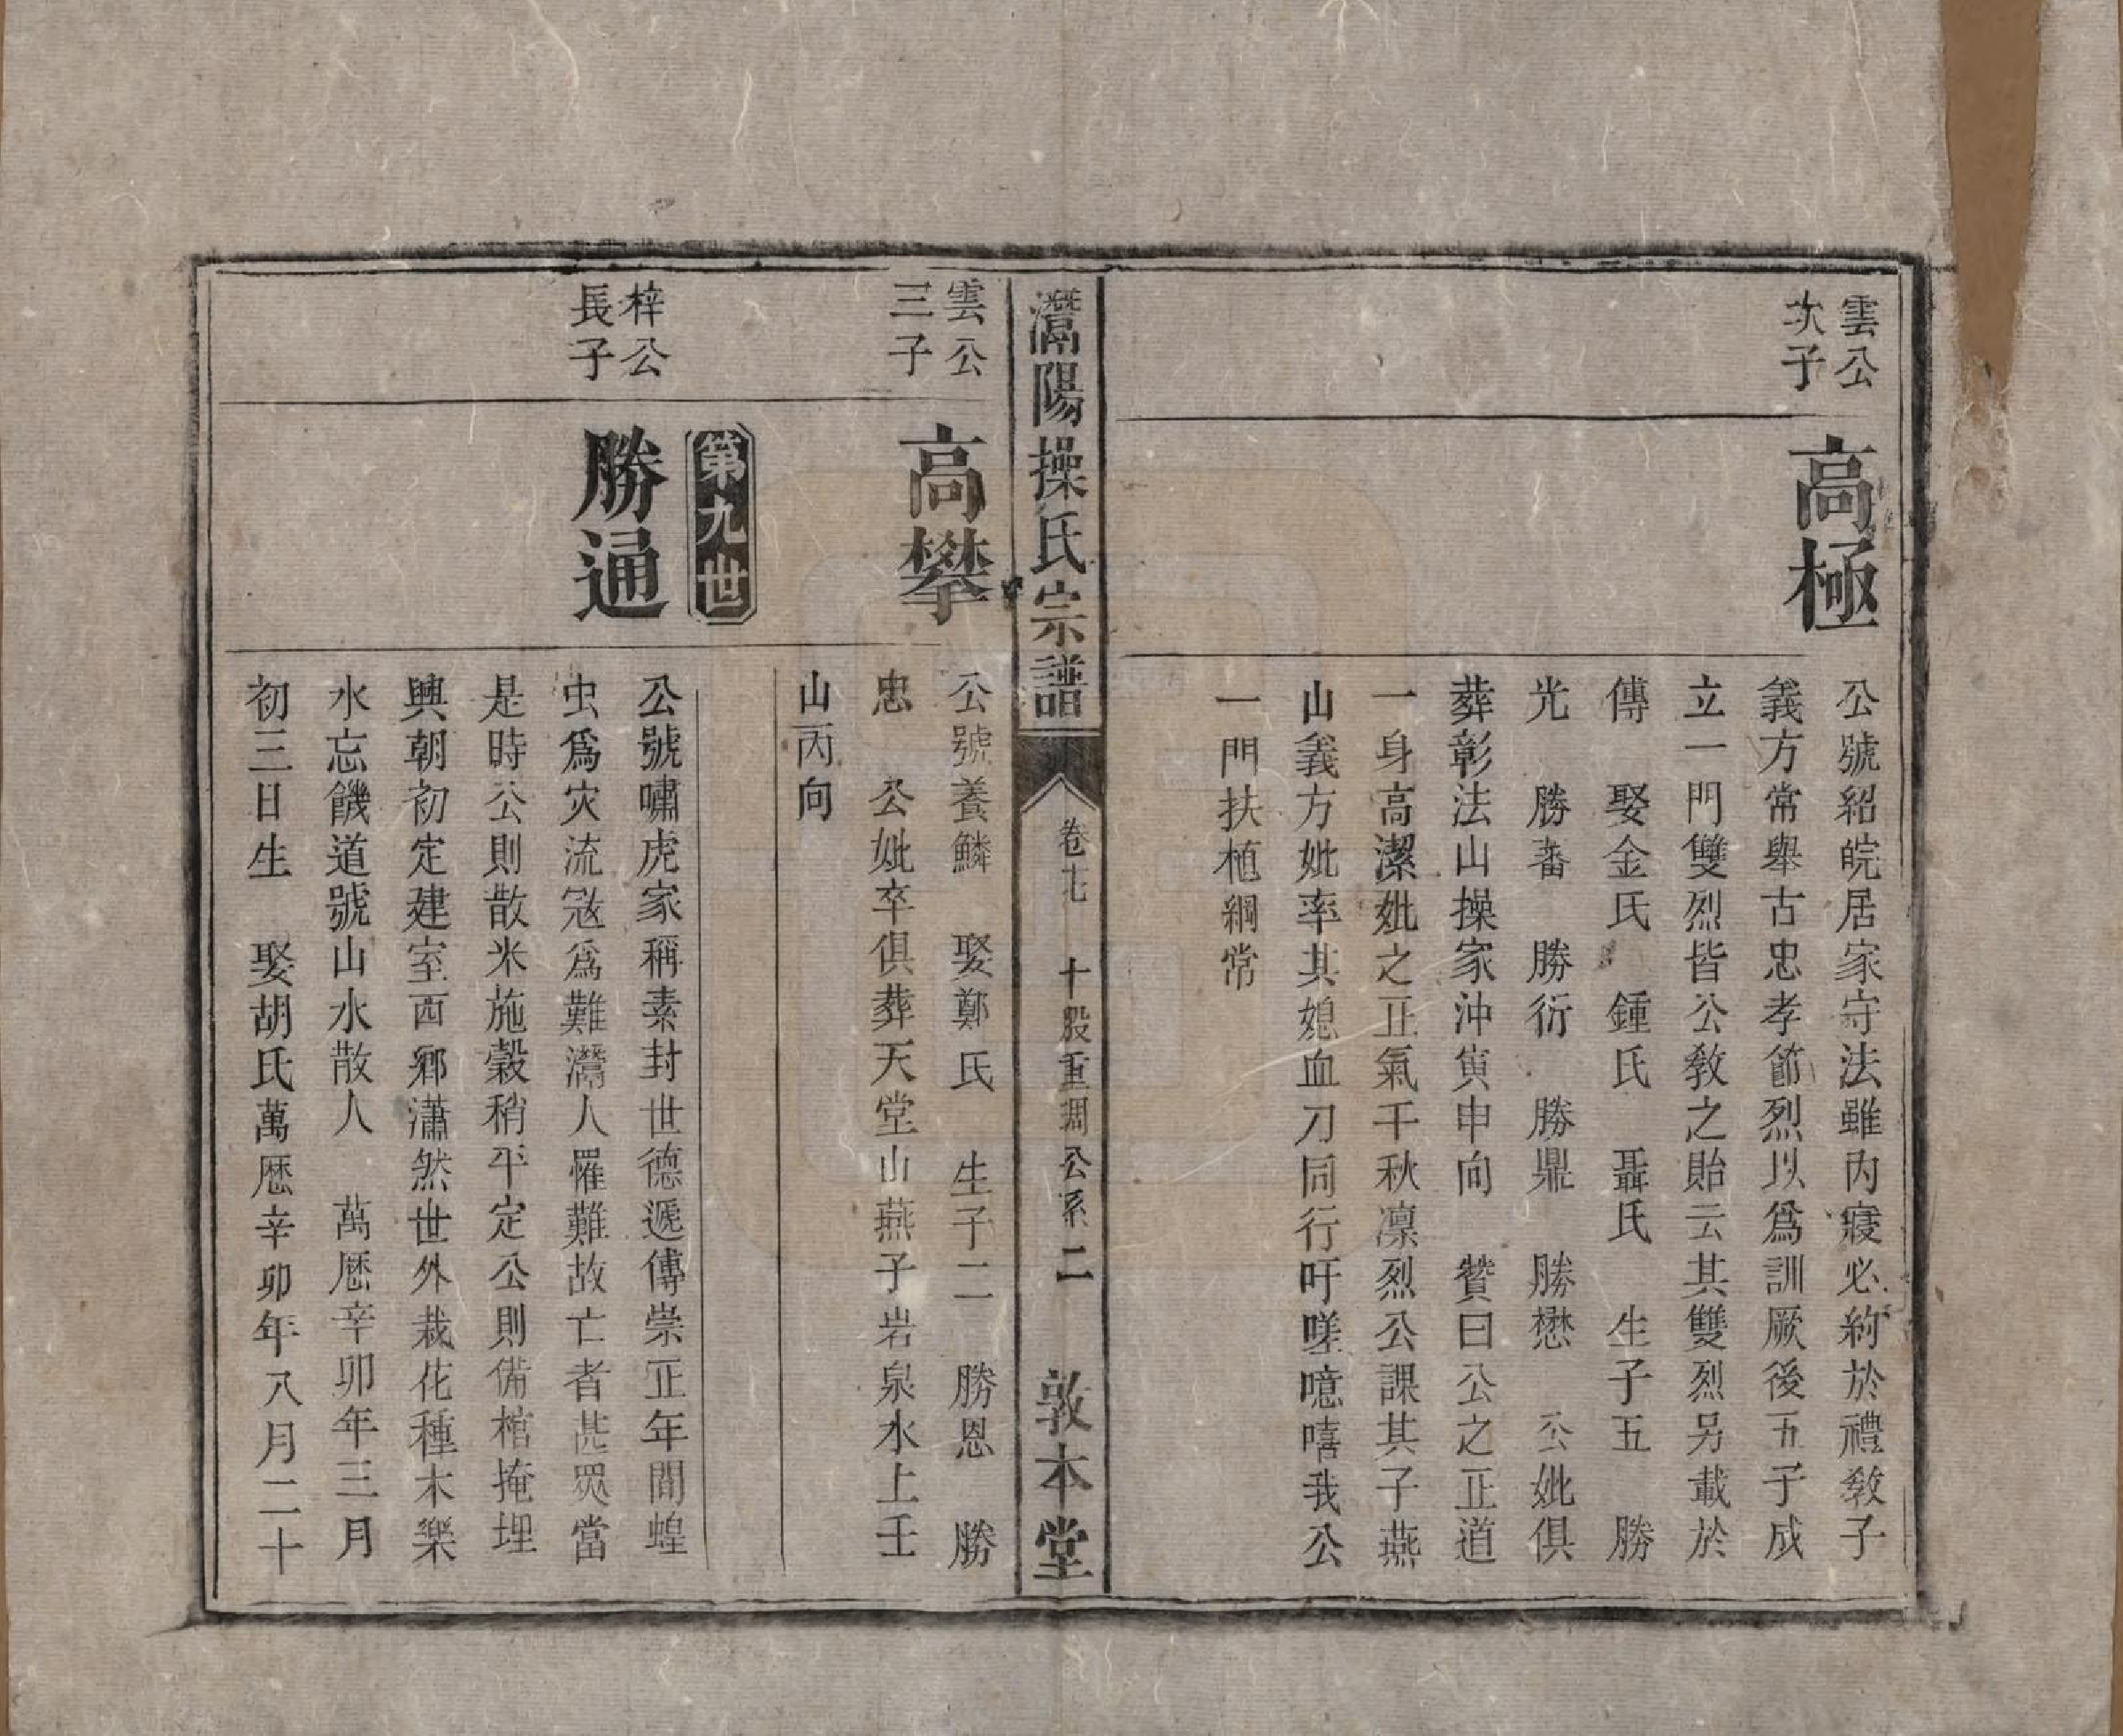 雲公
次子
高極
公號紹皖居家守法雖內寢必絇於禮教子
義方常舉古忠孝節烈以爲訓厥後五子成
立一門雙烈皆公敎之貽云其雙烈另載於
傳　娶金氏　鍾氏　聶氏　生子五　勝
光　勝蕃　勝衍　勝鼎　勝懋　公妣俱
葬彰法山操家沖寅申向　贊曰公之正道
一身高潔妣之正氣千秋凛烈公課其子燕
山義方妣率其媳血刀同行吁嗟噫嘻我公
一門扶植綱常
灊陽操氏宗譜
卷七　十股重潤公系　二
敦本堂
雲公
三子
高攀
公號養鱗　娶鄭氏　生子二　勝恩　勝
忠　公妣卒俱葬天堂山燕子岩泉水上壬
山丙向
第九世
梓公
長子
勝通
公號嘯虎家稱素封世德遞傳崇正年間蝗
虫爲灾流寇爲難灊人罹難故亡者甚眾當
是時公則散米施穀稍平定公則備棺掩埋
興朝初定建室西鄉瀟然世外栽花種木樂
水忘饑道號山水散人　萬厯辛卯年三月
初三日生　娶胡氏萬厯辛卯年八月二十